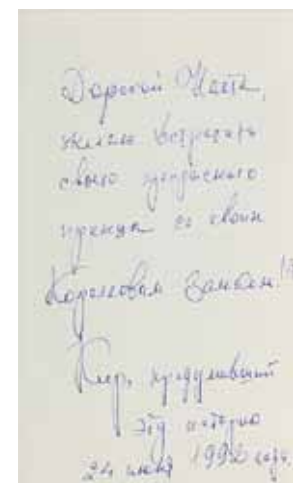 Дорогой Насте,
желаю встретить
своего прекрасного
принца со своим
Королевским замком!
придумавший
эту историю
24 июня 1992 года.